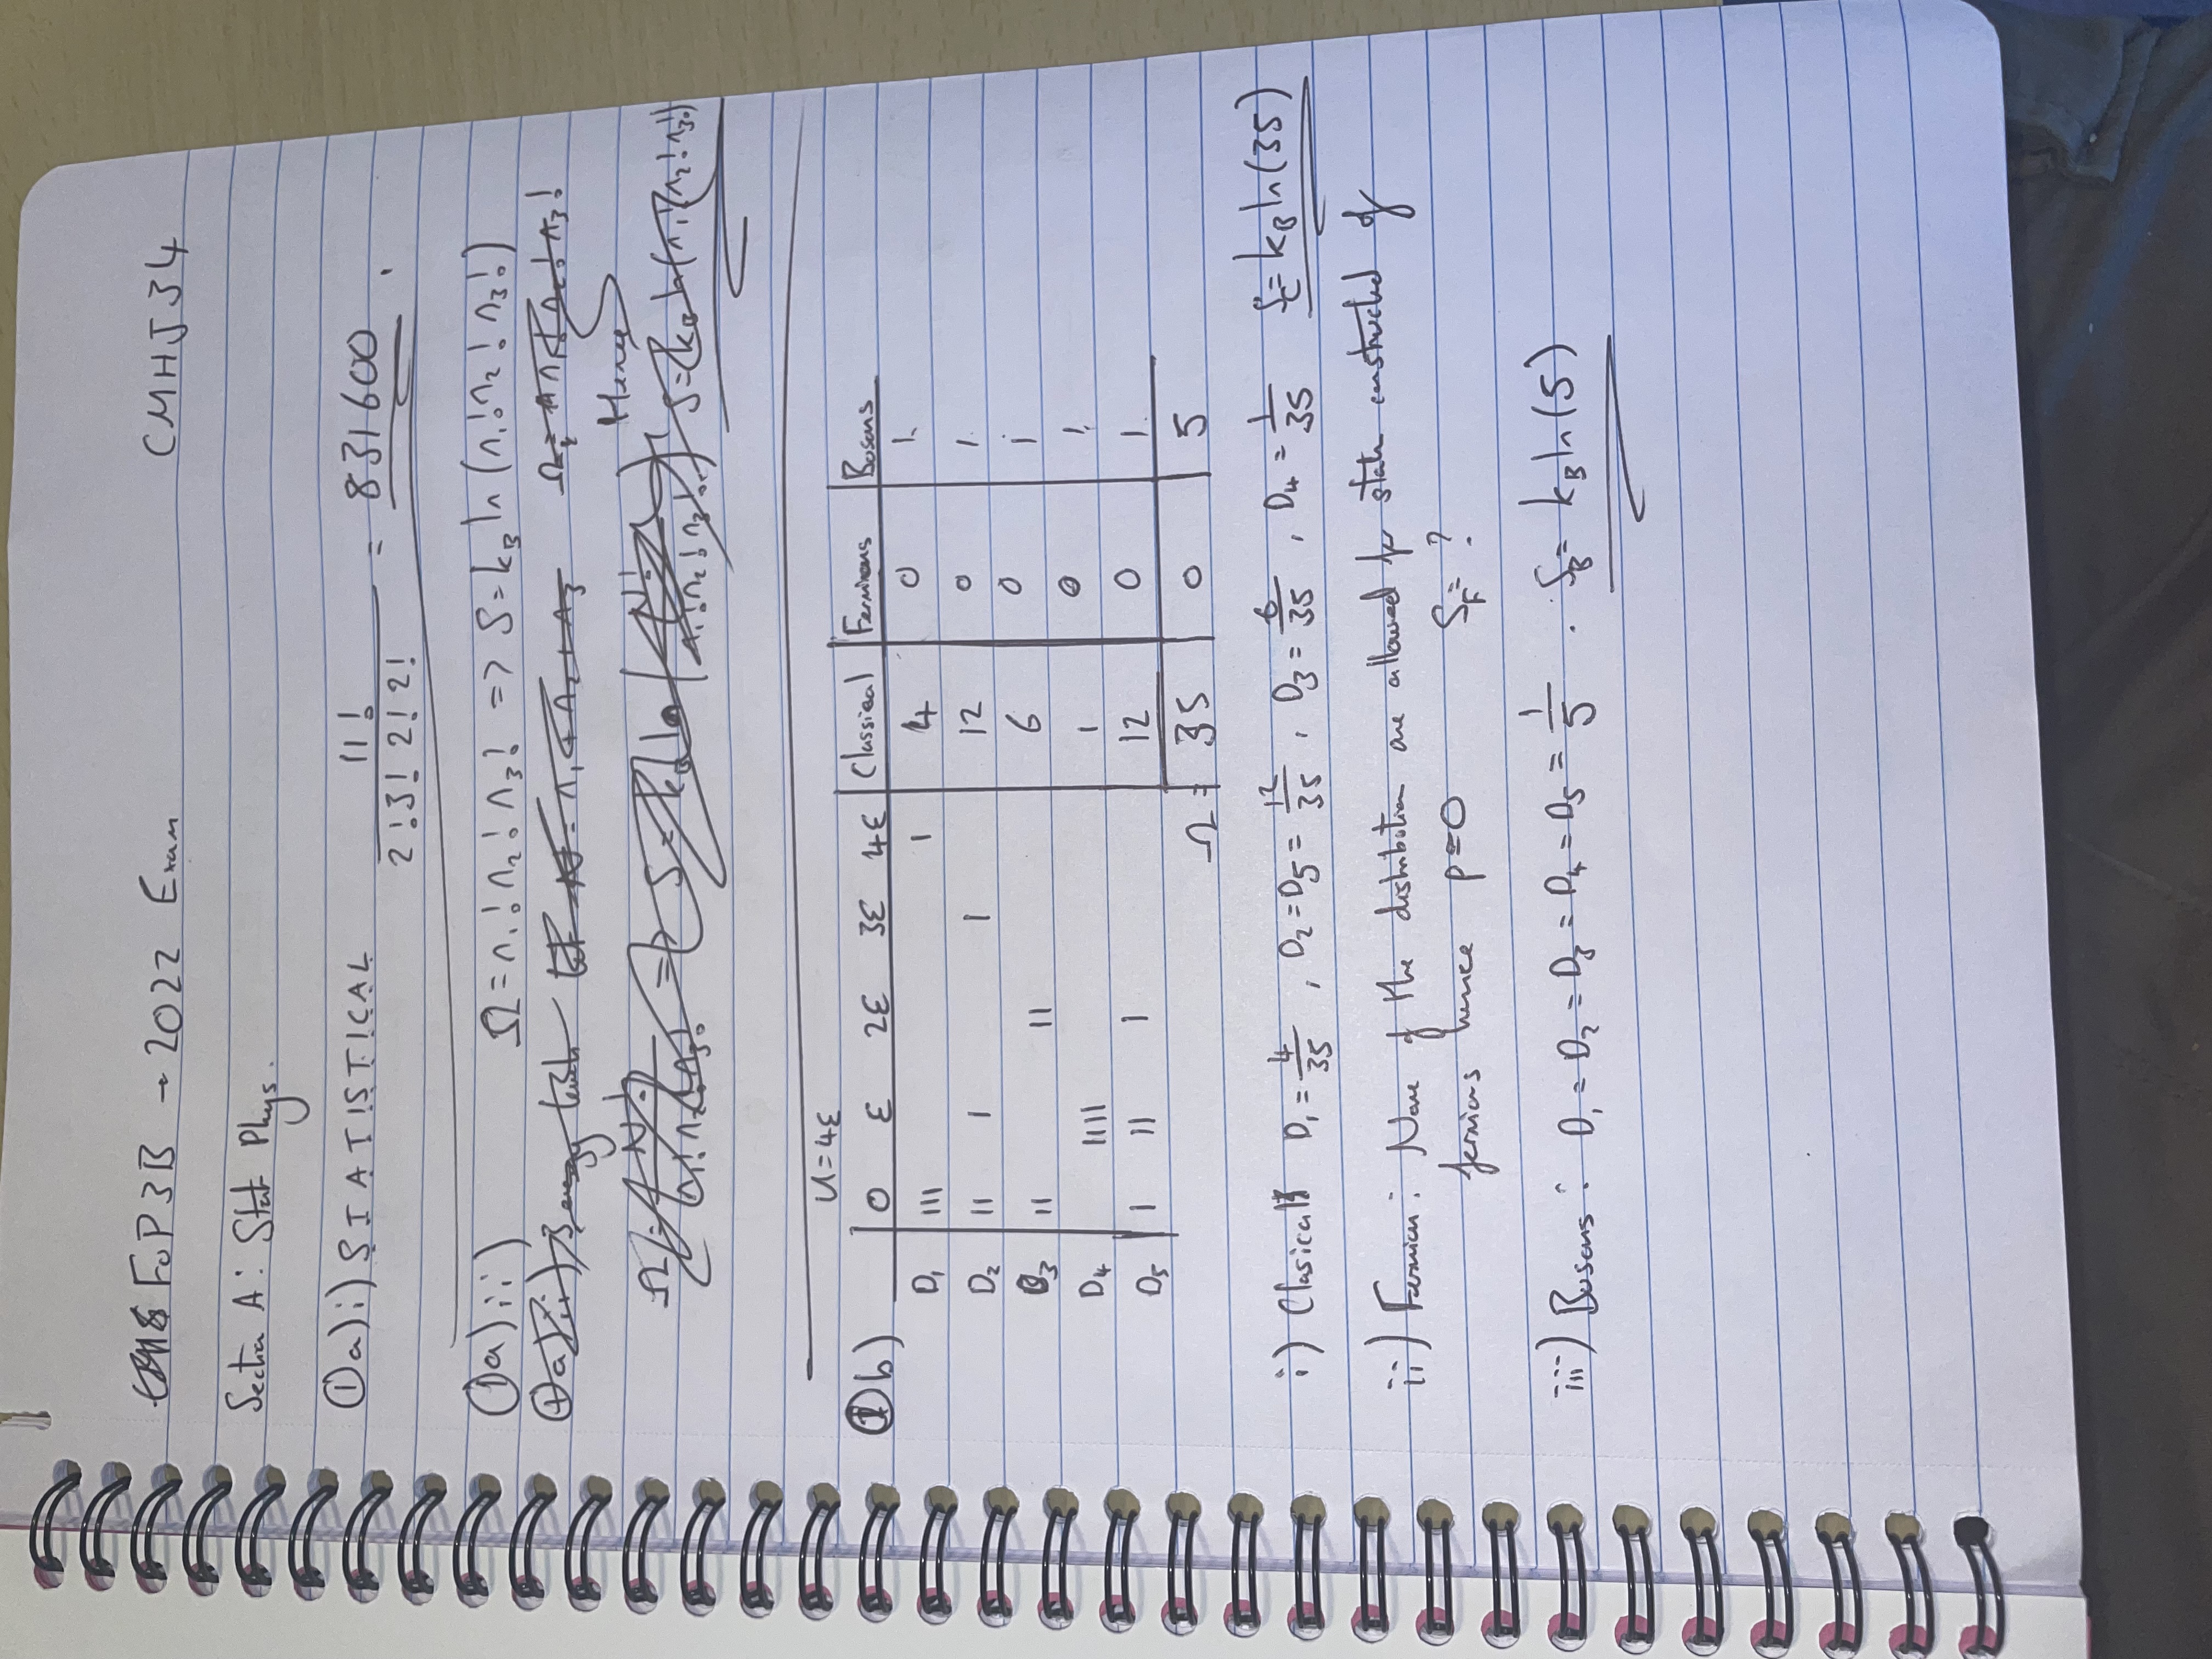 FoP3B → 2022 Exam CMHJ34
Section A: Stat Phys.
① a) i) STATISTICAL 11! / 2!3!2!2! = 831600.
① a) ii) Ω = n₁! n₂! n₃! => S = k_B ln (n₁! n₂! n₃!)
① a) ii) 3 energy levels let N = n₁ + n₂ + n₃ Ω = n₁! n₂! n₃!
Hence
Ω = N! / n₁! n₂! n₃! => S = k_B ln (N! / n₁! n₂! n₃!) S = k_B ln(n₁! n₂! n₃!)
U = 4ε
① b) 0 ε 2ε 3ε 4ε Classical Fermions Bosons
D₁ III I 4 0 1
D₂ II I I 12 0 1
D₃ II II 6 0 1
D₄ IIII 1 0 1
D₅ I II I 12 0 1
Ω = 35 0 5
i) Clasical D₁ = 4/35, D₂ = D₅ = 12/35, D₃ = 6/35, D₄ = 1/35 S_C = k_B ln(35)
ii) Fermion: None of the distribution are allowed for state constructed of
fermions hence p=0 S_F = ?
iii) Bosons: D₁ = D₂ = D₃ = D₄ = D₅ = 1/5. S_B = k_B ln(5)